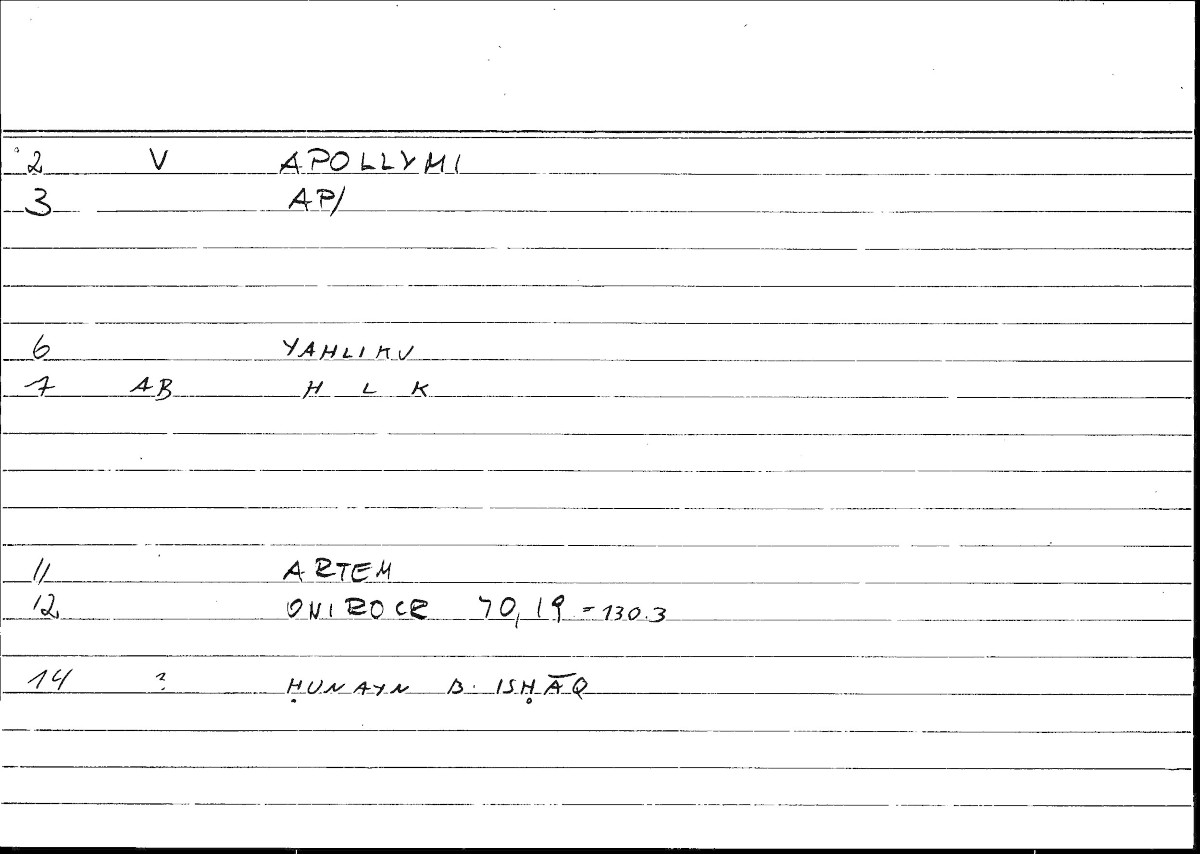 2 V APOLLYMI
3 AP/
6 YAHLIKU
7 AB H L K
11 ARTEM
12 ONIROCR 70,19 = 130.3
14 ? ḤUNAYN B. ISḤĀQ